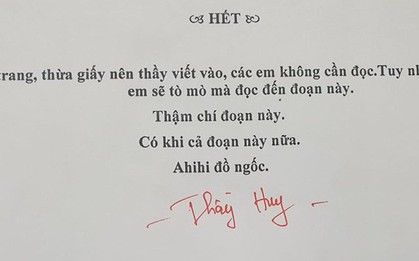 HẾT
trang, thừa giấy nên thầy viết vào, các em không cần đọc.Tuy nh
em sẽ tò mò mà đọc đến đoạn này.
Thậm chí đoạn này.
Có khi cả đoạn này nữa.
Ahihi đồ ngốc.
- Thầy Huy -